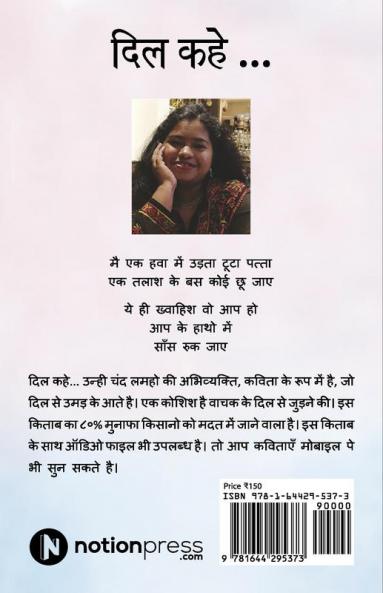 दिल कहे ...
मै एक हवा में उड़ता टूटा पत्ता
एक तलाश के बस कोई छू जाए
ये ही ख्वाहिश वो आप हो
आप के हाथो में
साँस रुक जाए
दिल कहे... उन्ही चंद लमहो की अभिव्यक्ति, कविता के रूप में है, जो
दिल से उमड़ के आते है। एक कोशिश है वाचक के दिल से जुड़ने की। इस
किताब का ८०% मुनाफा किसानो को मदत में जाने वाला है। इस किताब
के साथ ऑडिओ फाइल भी उपलब्ध है। तो आप कविताएँ मोबाइल पे
भी सुन सकते है।
Price ₹150
ISBN 978-1-64429-537-3
90000
9 781644 295373
N notionpress
.com